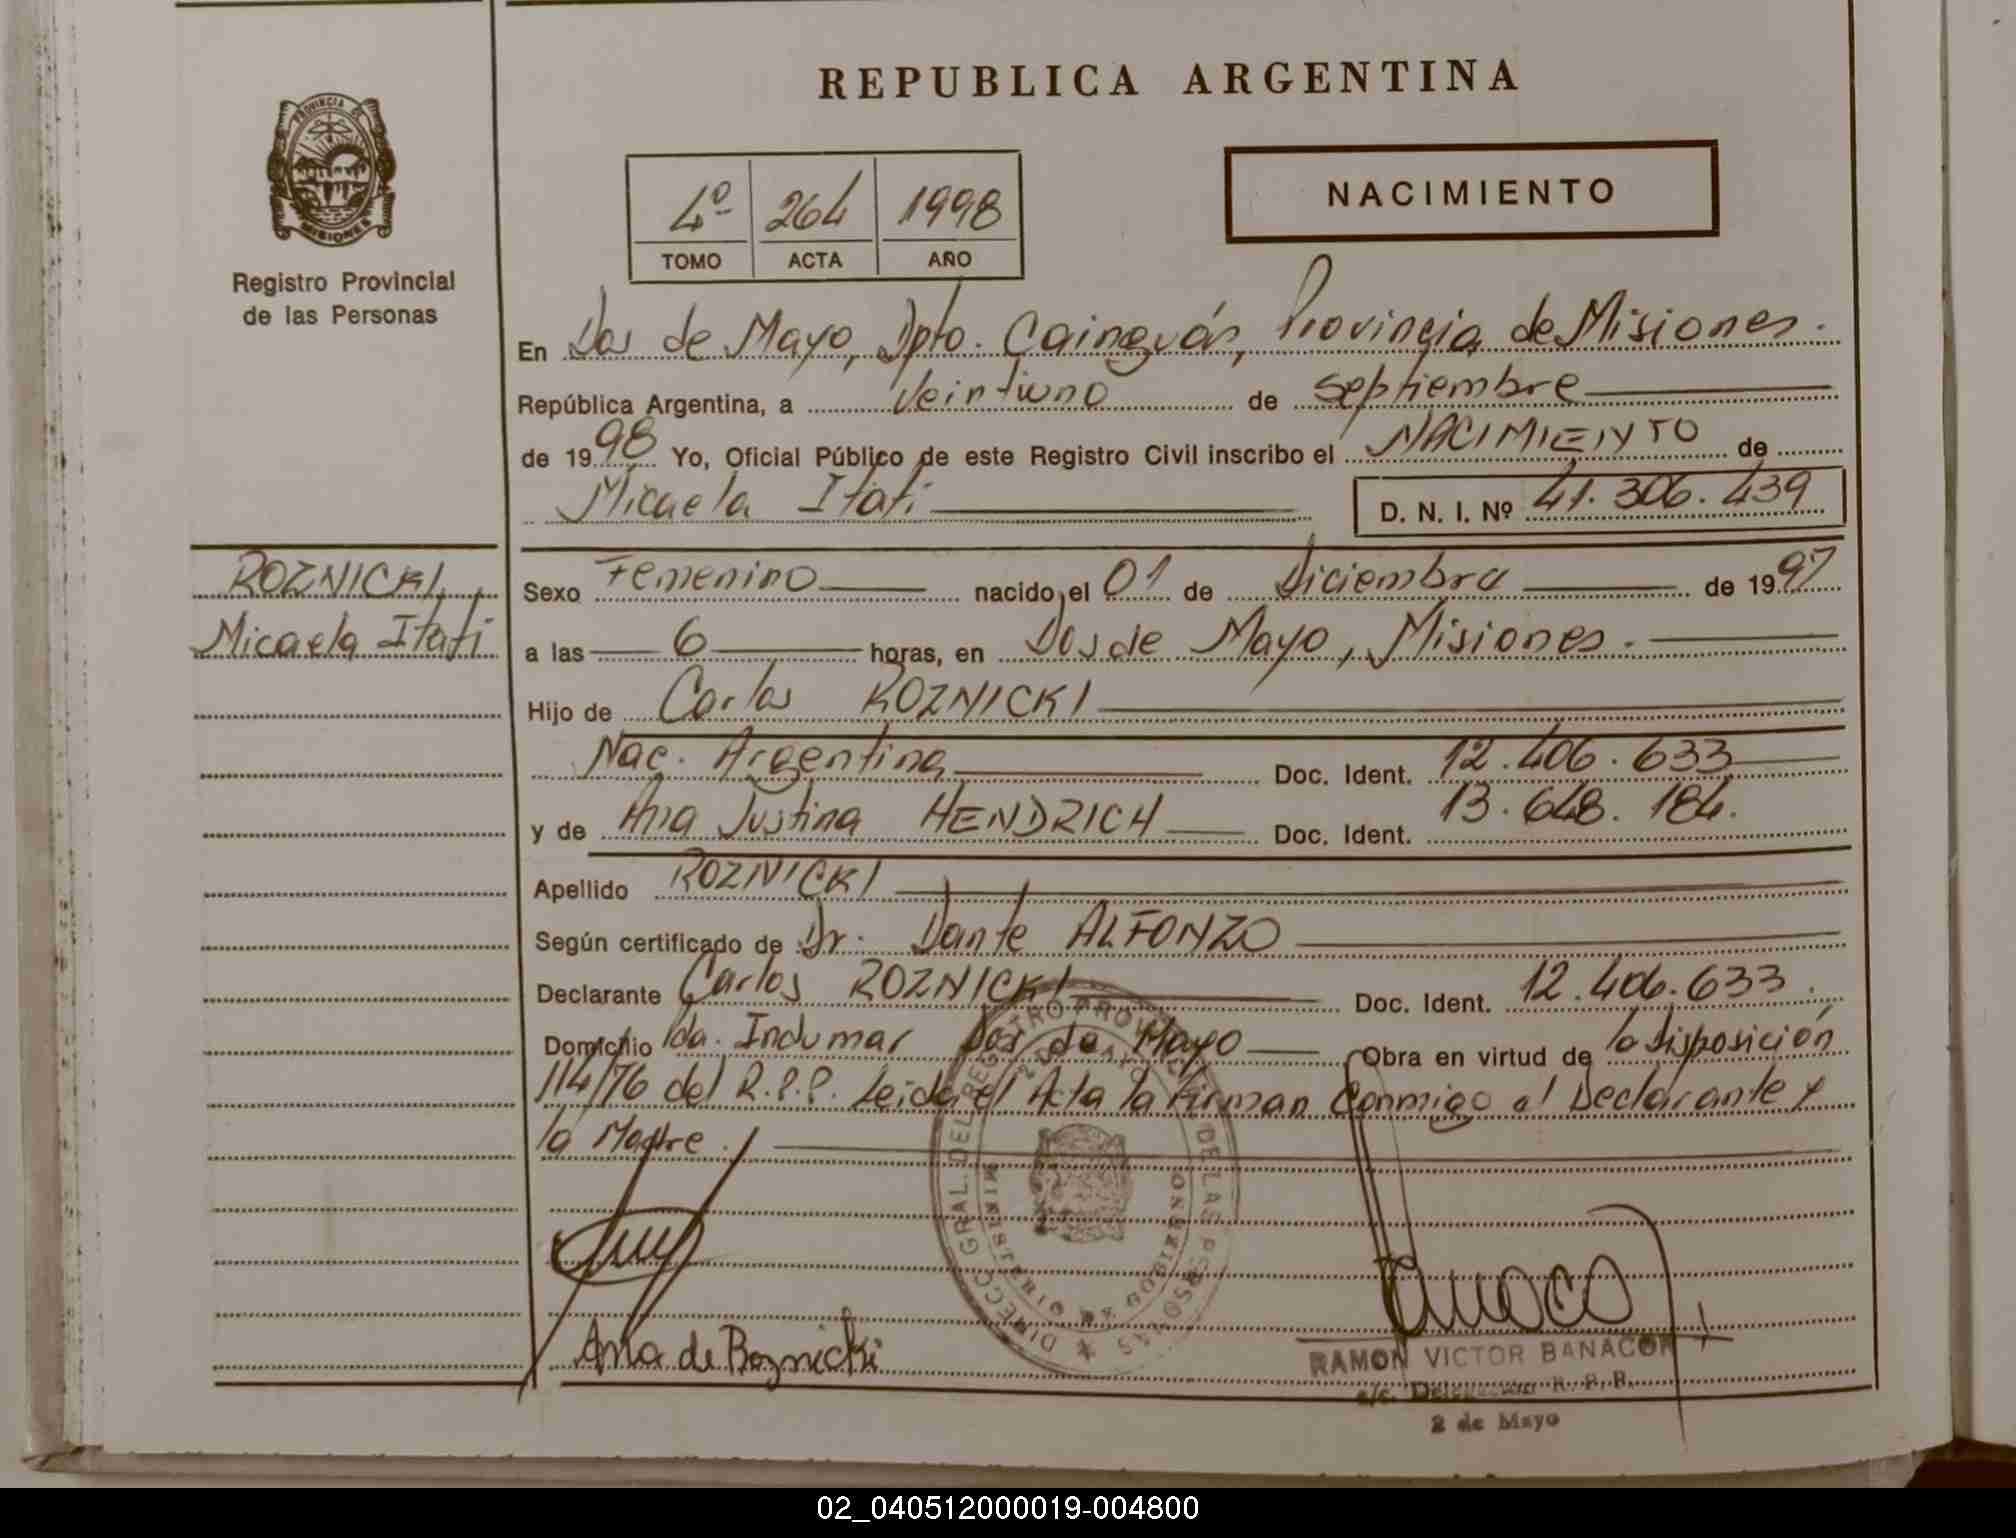 REPUBLICA ARGENTINA
PROVINCIA DE MISIONES
Registro Provincial
de las Personas
4º 264 1998
TOMO ACTA AÑO
NACIMIENTO
En Dos de Mayo, Dpto. Cainguás, Provincia de Misiones.
República Argentina, a Veintiuno de septiembre
de 1998 Yo, Oficial Público de este Registro Civil inscribo el NACIMIENTO de
Micaela Itati D. N. I. Nº 41.306.439
ROZNICKI,
Micaela Itati
Sexo Femenino nacido el 01 de Diciembre de 1997
a las 6 horas, en Dos de Mayo, Misiones.
Hijo de Carlos ROZNICKI
Nac. Argentina Doc. Ident. 12.406.633
y de Ana Justina HENDRICH Doc. Ident. 13.648.184.
Apellido ROZNICKI
Según certificado de Dr. Dante ALFONZO
Declarante Carlos ROZNICKI Doc. Ident. 12.406.633.
Domicilio Indumar Dos de Mayo Obra en virtud de la disposición
114/76 del R.P.P. Leida el Acta la Firman Conmigo el Declarante y
la Madre.
DIRECC. GRAL. DEL REGISTRO PROVINC. DE LAS PERSONAS
MINISTERIO DE GOBIERNO
Ana de Roznicki
RAMON VICTOR BANACOR
R. P. P.
2 de Mayo
02_040512000019-004800